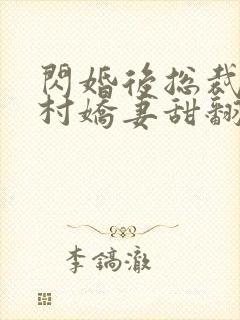 閃婚後总裁
村嬌妻甜翻
李鎬澈